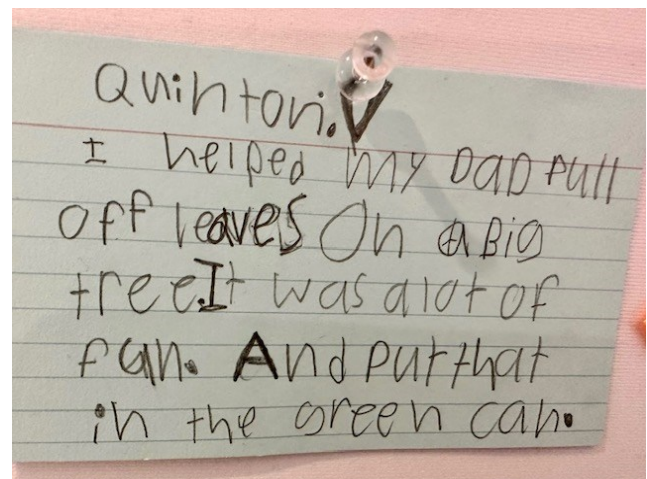 Quinton. V
I helped my DaD Pull
off leaves On a Big
tree.It was a lot of
fun. And put that
in the green can.